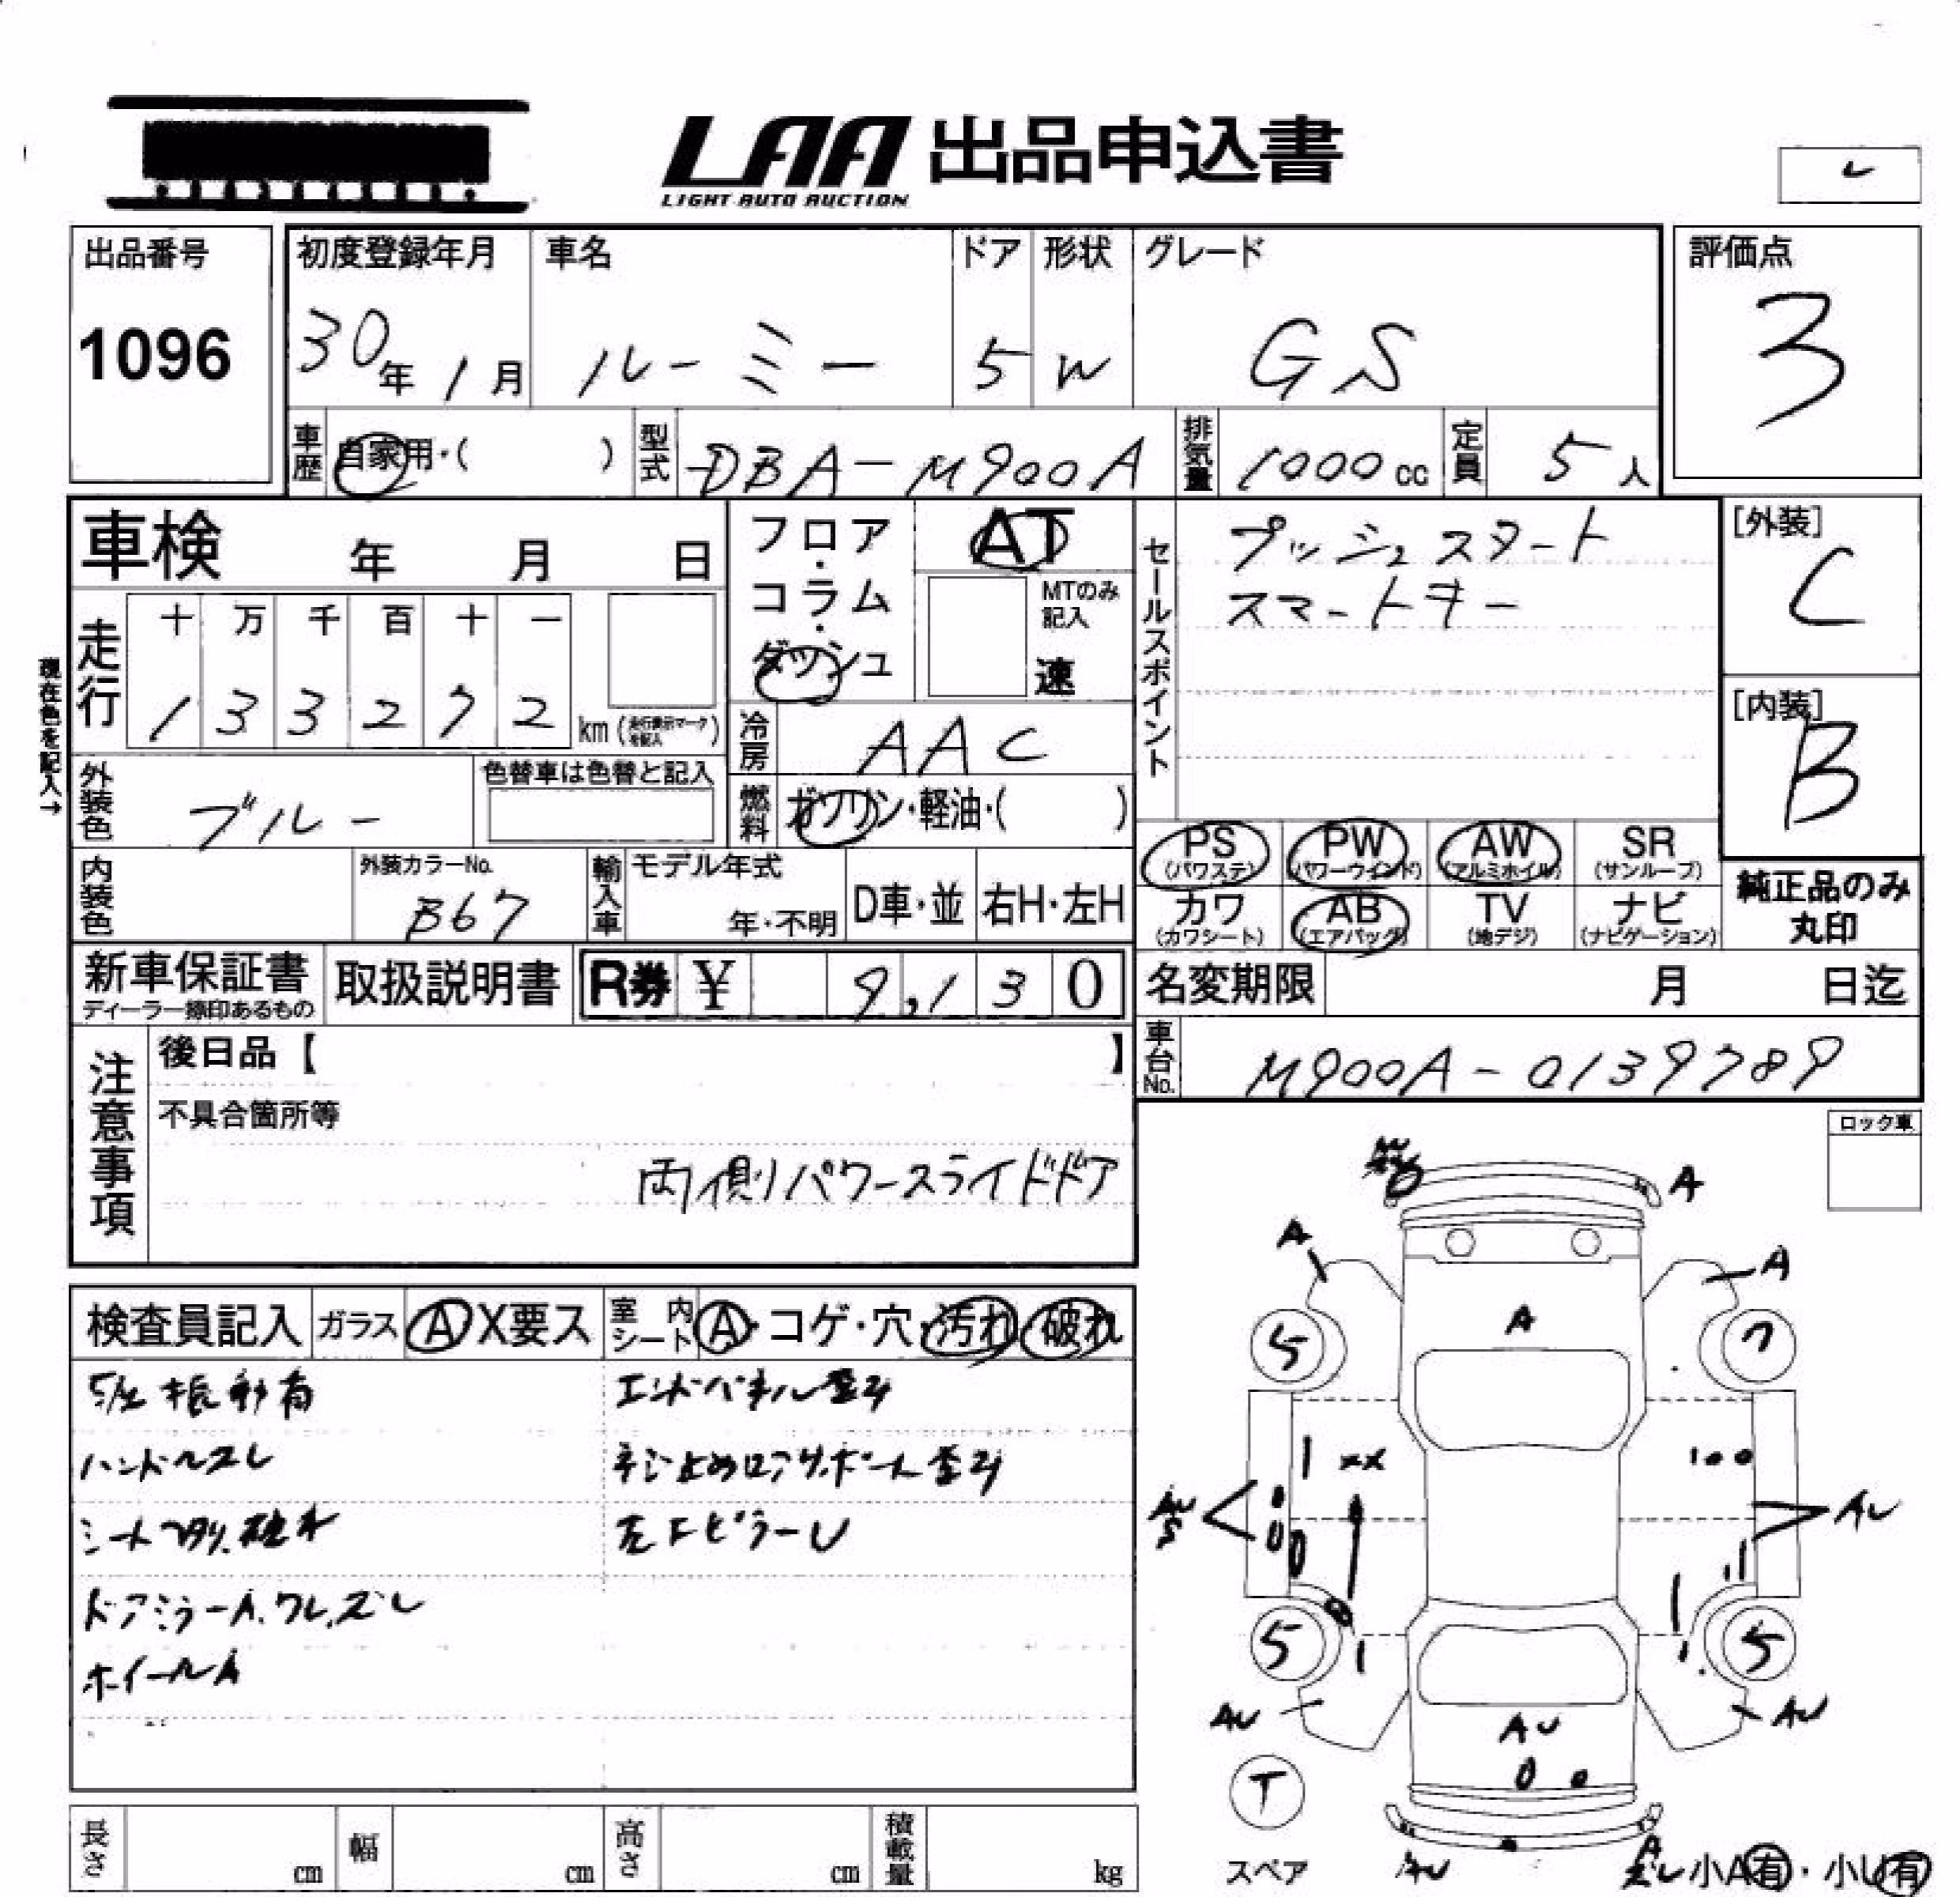 LAA 出品申込書
LIGHT AUTO AUCTION
出品番号
1096
初度登録年月
30年1月
車名
ルーミー
ドア
5
形状
W
グレード
GS
評価点
3
車歴 自家用・( )
型式 DBA-M900A
排気量 1000cc
定員 5人
車検 年 月 日
フロア・コラム・ダッシュ
AT
MTのみ記入
速
セールスポイント
プッシュスタート
スマートキー
[外装]
C
[内装]
B
現在色を記入→
走行
十 万 千 百 十 一
1 3 3 2 7 2 km (走行表示マークを記入)
冷房 AAC
外装色 ブルー
色替車は色替と記入
燃料 ガソリン・軽油・( )
PS (パワステ)
PW (パワーウィンド)
AW (アルミホイル)
SR (サンルーフ)
内装色
外装カラーNo.
B67
輸入車
モデル年式
年・不明
D車・並
右H・左H
カワ (カワシート)
AB (エアバック)
TV (地デジ)
ナビ (ナビゲーション)
純正品のみ
丸印
新車保証書
ディーラー捺印あるもの
取扱説明書
R券 ¥ 9,130
名変期限 月 日迄
車台No. M900A-0139789
注意事項
後日品【 】
不具合箇所等
両側パワースライドドア
ロック車
検査員記入
ガラス A X要ス
室内シート A・コゲ・穴・汚れ・破れ
エンドパネル歪み
ハンドルスレ
ネジ止めロアサポート歪み
ドアミラーA、ワレ、ズレ
ホイールA
A
A
A
A
5
7
A
XX
AU
S
AU
5
5
AU
AU
AU
T
スペア
AU
A
ズレ
小A有・小U有
長さ cm
幅 cm
高さ cm
積載量 kg